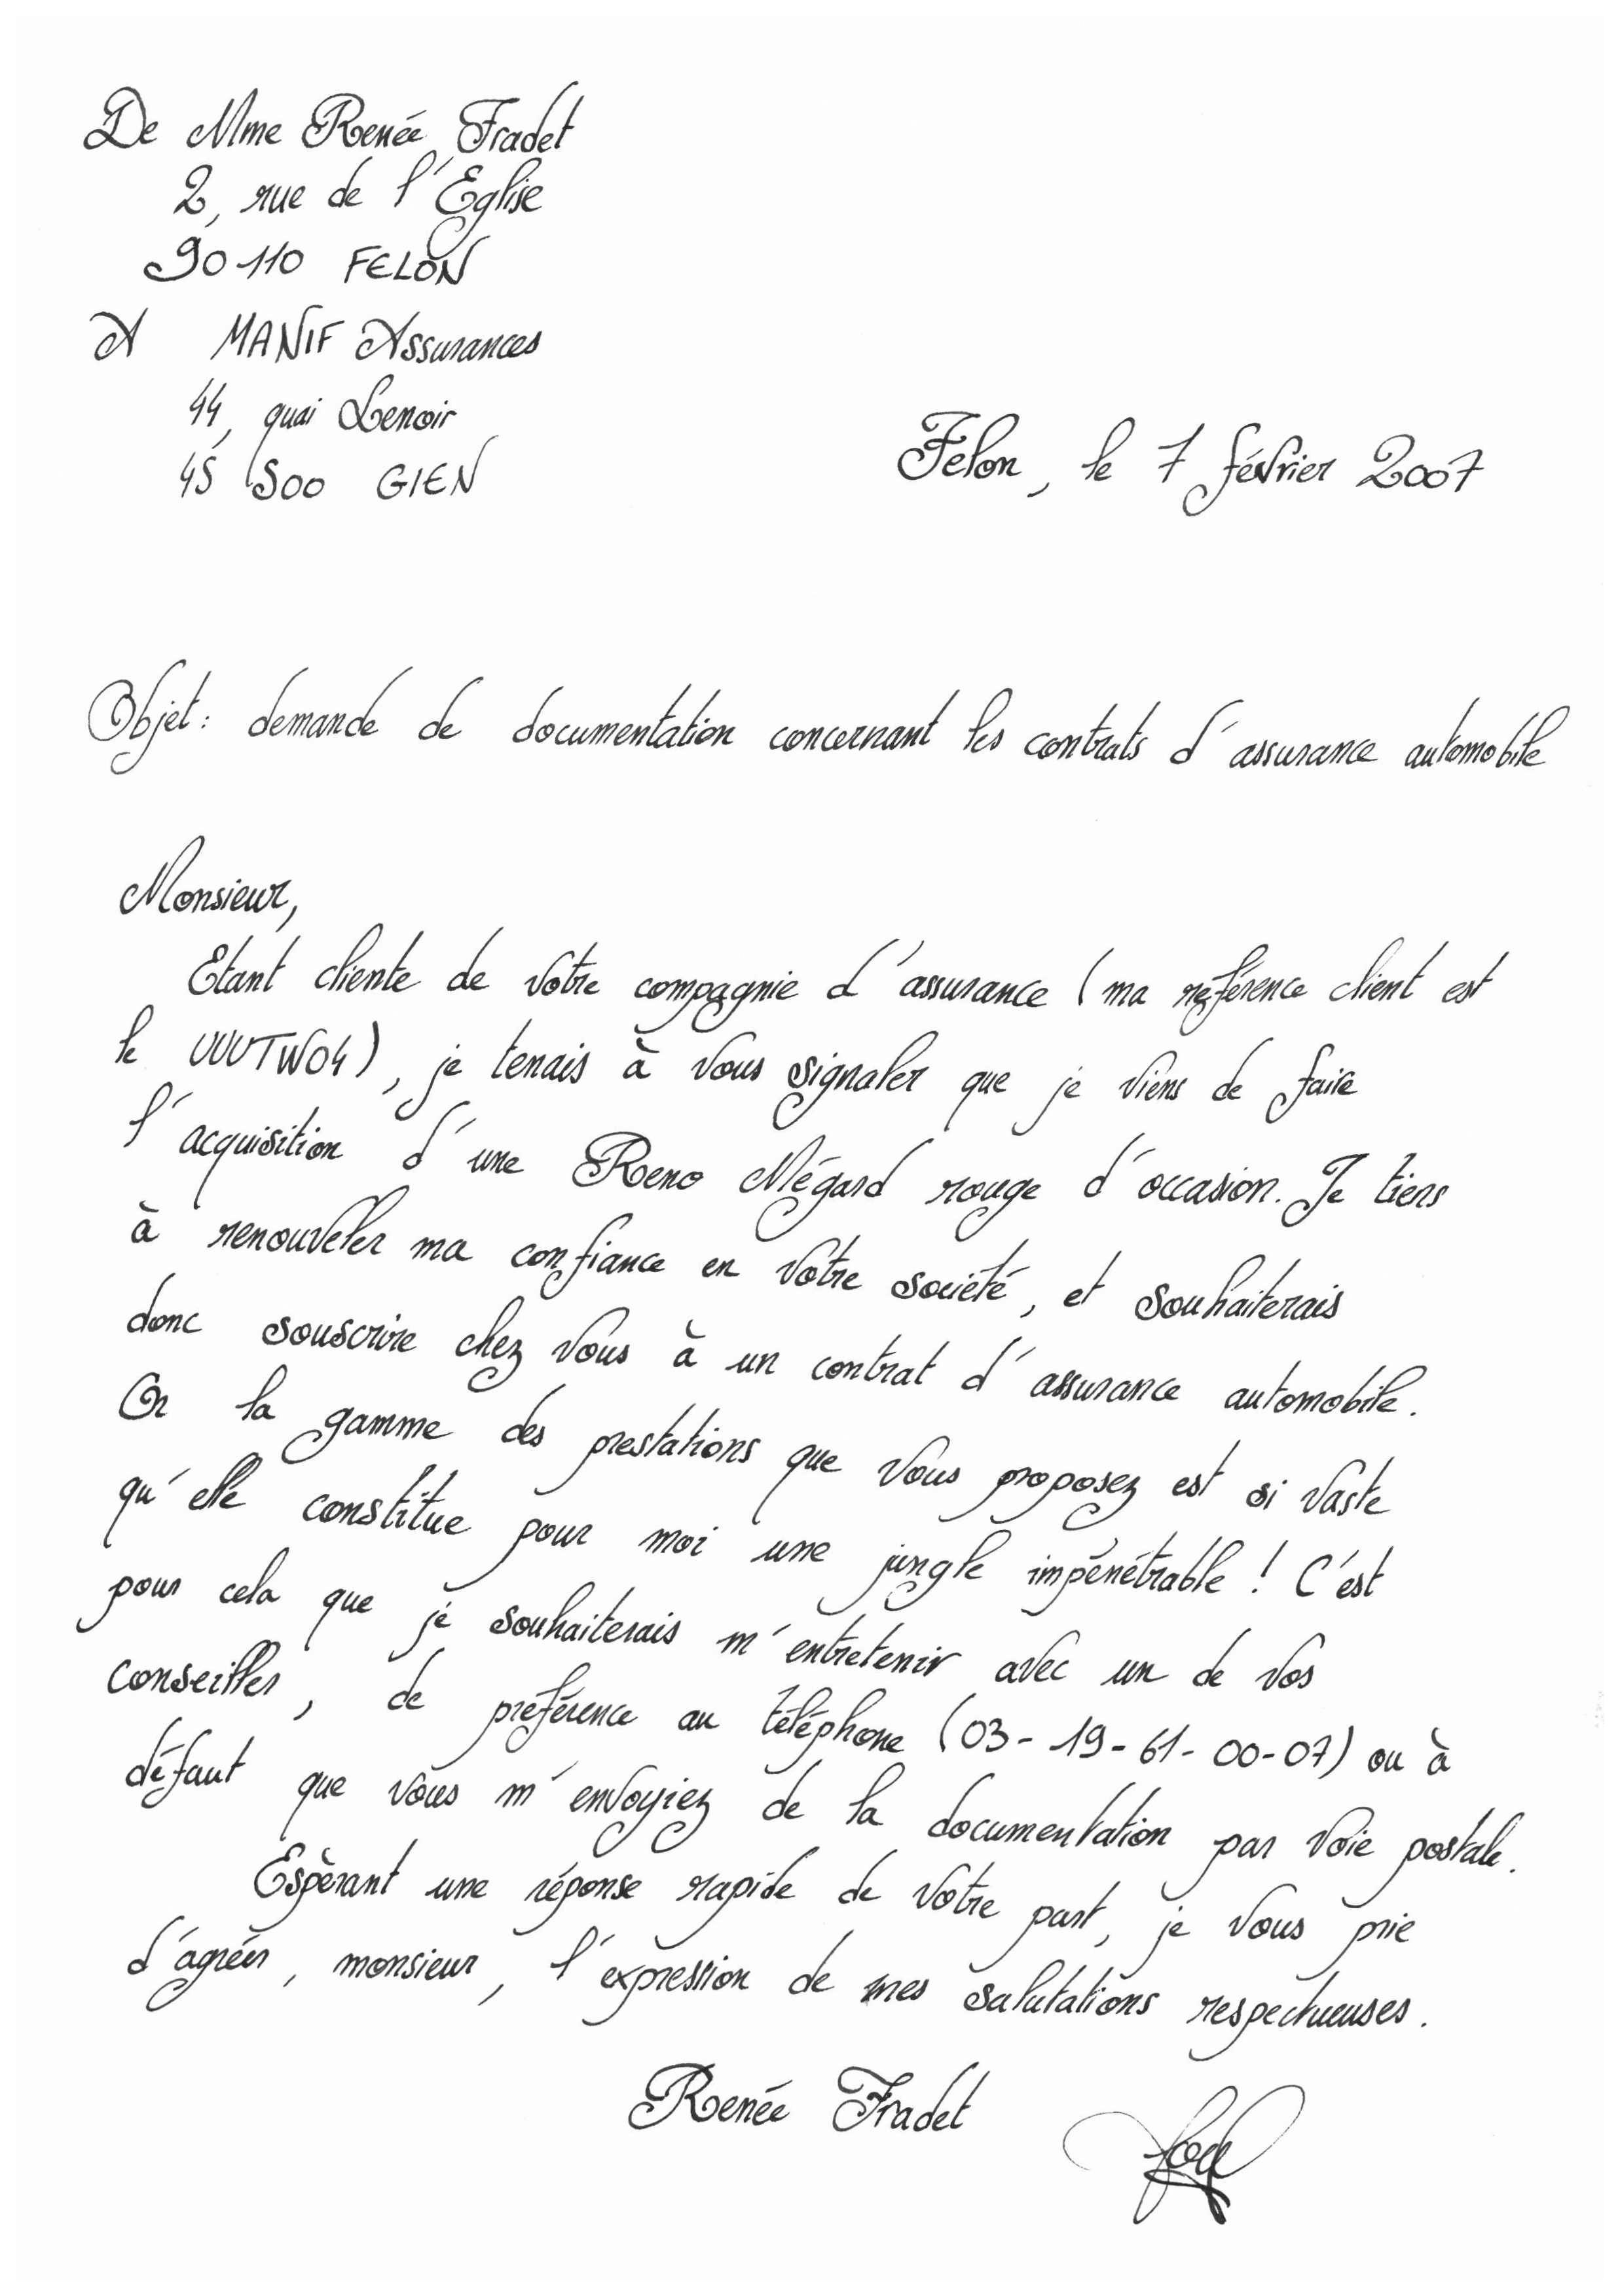 De Mme Renée Fradet
2, rue de l'Eglise
90110 FELON
A MANIF Assurances
44, quai Lenoir
45 500 GIEN
Felon, le 7 février 2007
Objet : demande de documentation concernant les contrats d'assurance automobile
Monsieur,
Etant cliente de votre compagnie d'assurance (ma référence client est
le UUUTW04), je tenais à vous signaler que je viens de faire
l'acquisition d'une Reno Mégard rouge d'occasion. Je tiens
à renouveler ma confiance en votre société, et souhaiterais
donc souscrire chez vous à un contrat d'assurance automobile.
Or la gamme des prestations que vous proposez est si vaste
qu'elle constitue pour moi une jungle impénétrable ! C'est
pour cela que je souhaiterais m'entretenir avec un de vos
conseillers, de préférence au téléphone (03-19-61-00-07) ou à
défaut que vous m'envoyiez de la documentation par voie postale.
Espérant une réponse rapide de votre part, je vous prie
d'agréer, monsieur, l'expression de mes salutations respectueuses.
Renée Fradet